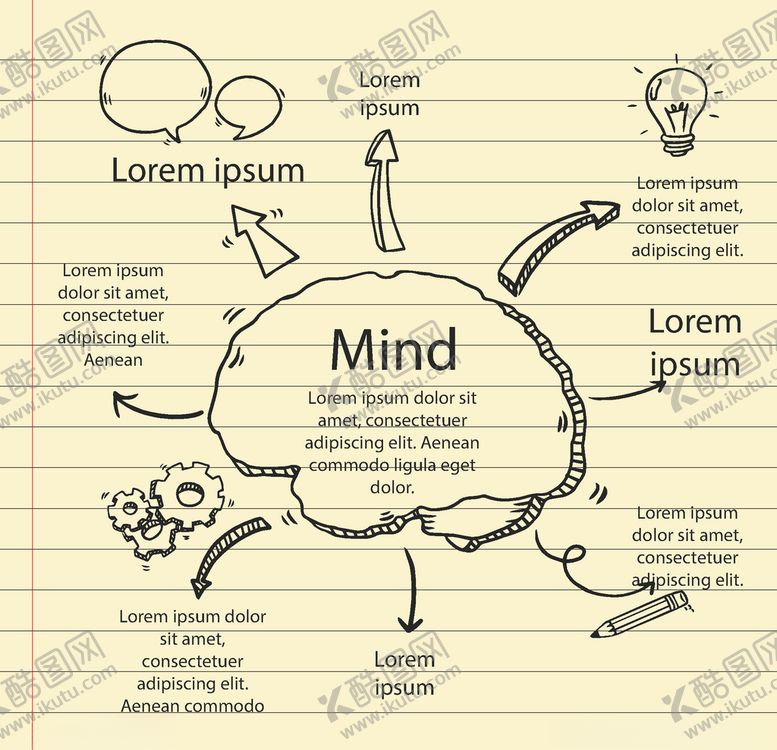 Lorem
ipsum
Lorem ipsum
Lorem ipsum
dolor sit amet,
consectetuer
adipiscing elit.
Lorem ipsum
dolor sit amet,
consectetuer
adipiscing elit.
Aenean
Mind
Lorem ipsum dolor sit
amet, consectetuer
adipiscing elit. Aenean
commodo ligula eget
dolor.
Lorem
ipsum
Lorem ipsum
dolor sit amet,
consectetuer
adipiscing elit.
Lorem ipsum dolor
sit amet,
consectetuer
adipiscing elit.
Aenean commodo
Lorem
ipsum
酷图网
www.ikutu.com